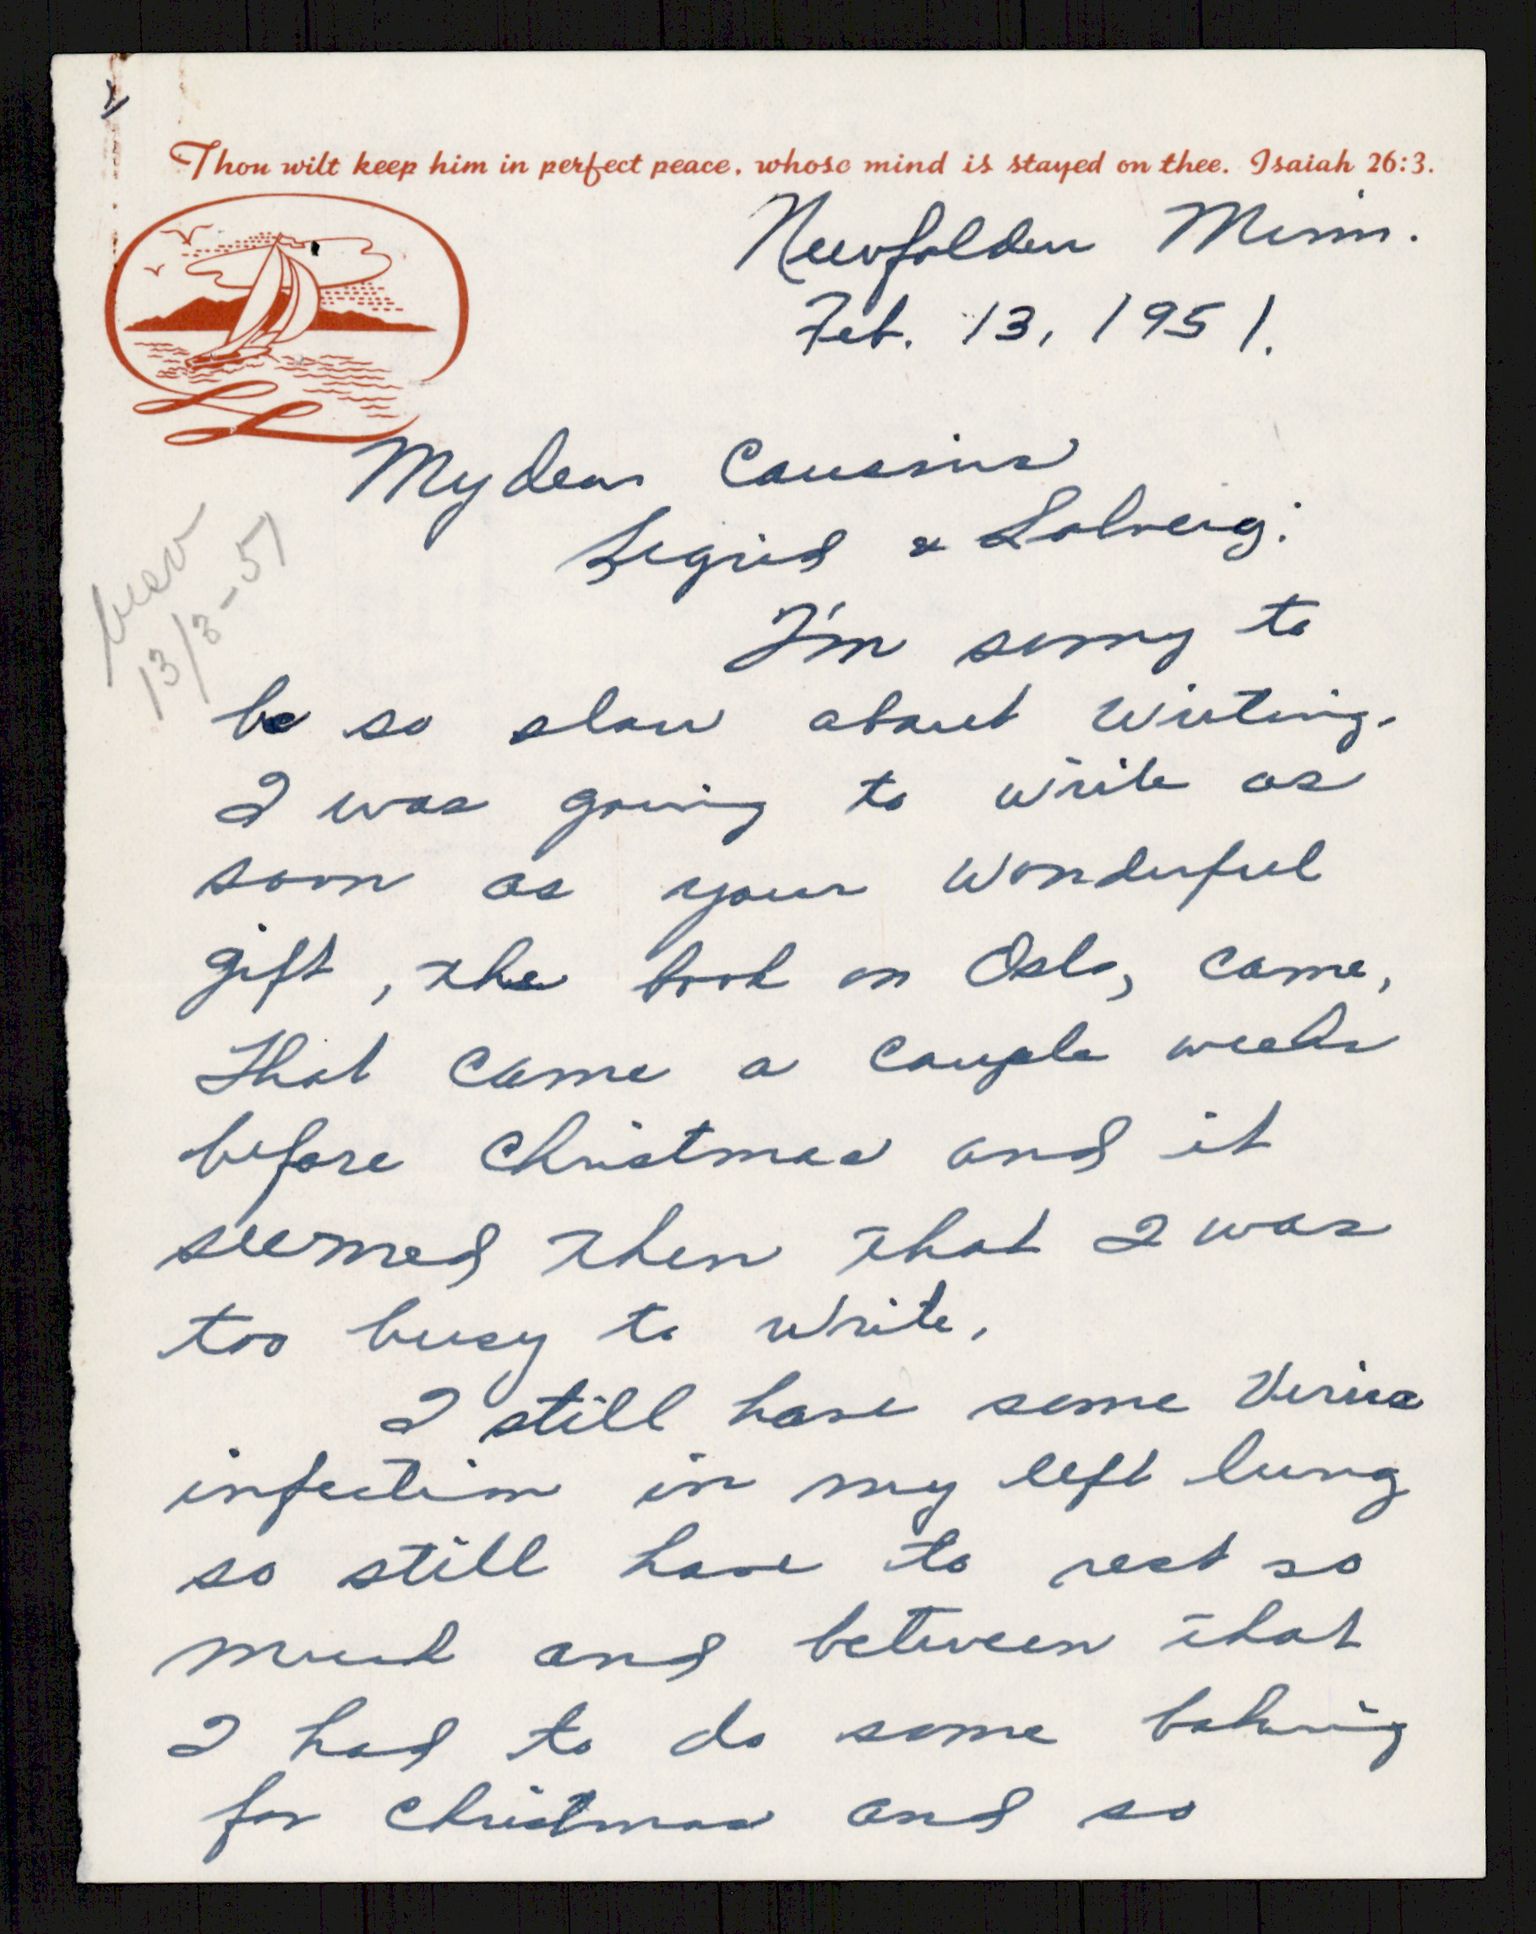 Thou wilt keep him in perfect peace, whose mind is stayed on thee. Isaiah 26:3.
Newfolden Minn.
Feb. 13, 1951.
My dear Cousins
Sigrid & Solveig:
besv
13/3-51
I'm sorry to
be so slow about writing.
I was going to write as
soon as your wonderful
gift, the book on Oslo, came,
That came a couple weeks
before Christmas and it
seemed then that I was
too busy to write.
I still have some Virus
infection in my left lung
so still have to rest so
much and between that
I had to do some baking
for Christmas and so